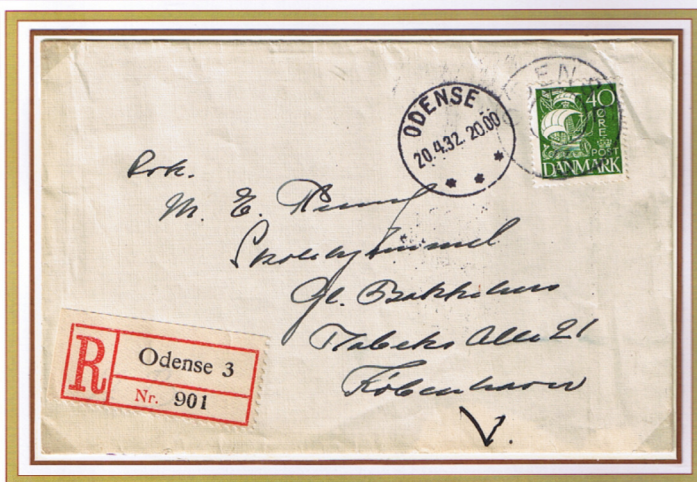 ODENSE
20.4.32. 20.00
ODENSE
40
ØRE
POST
DANMARK
M. E.
Gl. Bakkehus
Rahbeks Alle 21
København
V.
R
Odense 3
Nr. 901